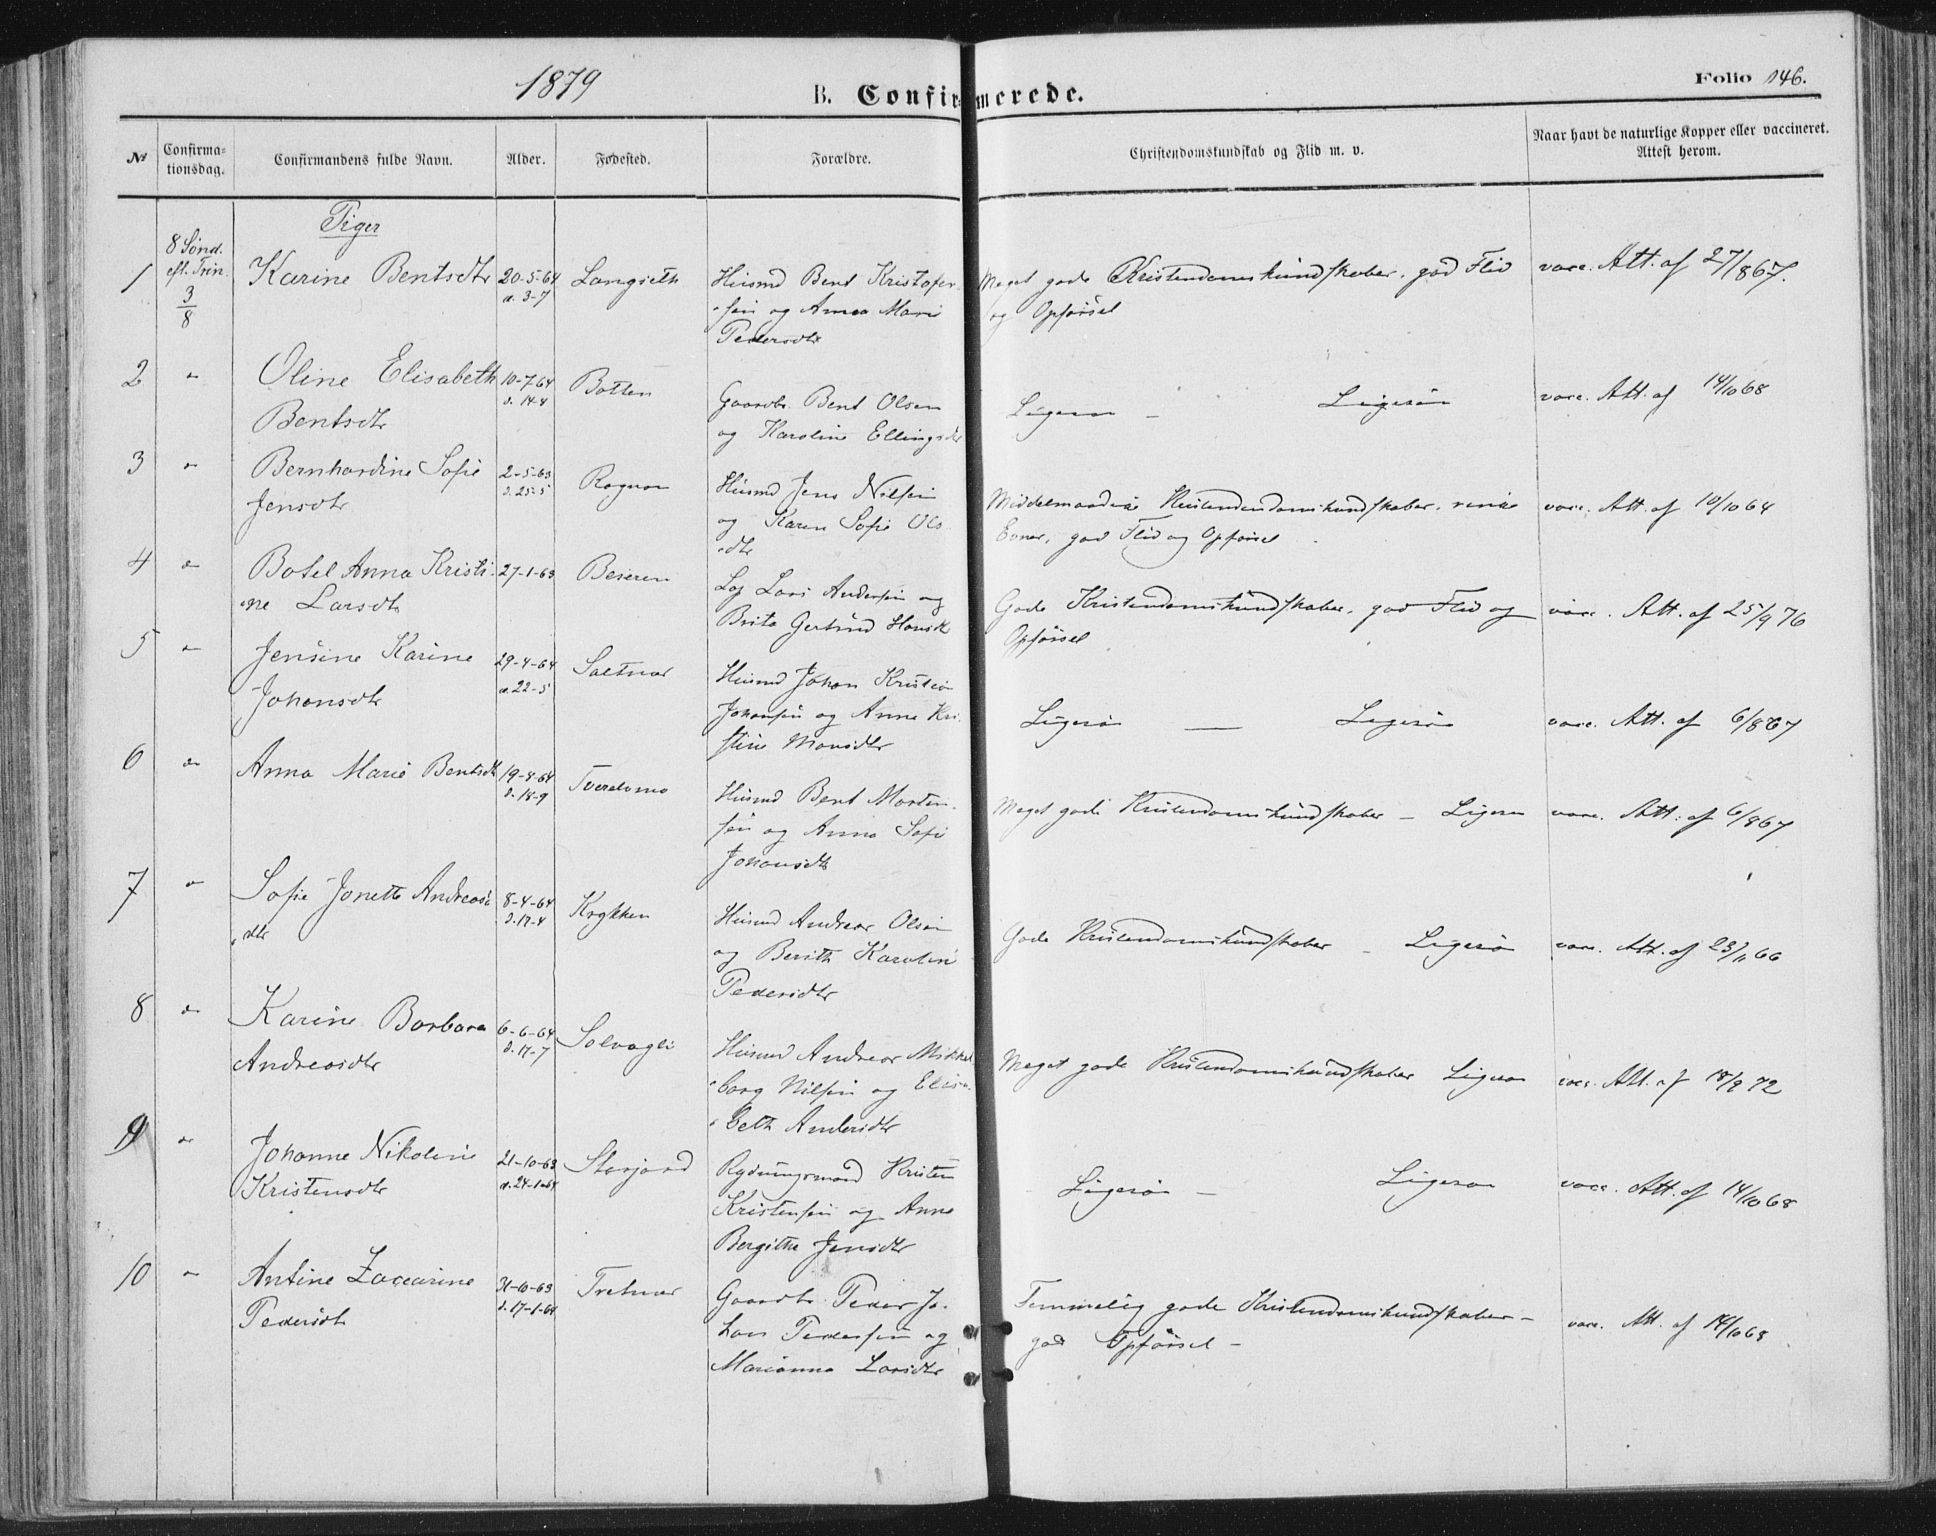 1879
B. Confirmerede.
Folio 146.
№
Confirma-
tionsdag.
Confirmandens fulde Navn.
Alder.
Fødested.
Forældre.
Christendomskundskab og Flid m. v.
Naar havt de naturlige Kopper eller vaccineret.
Attest herom.
Piger
1
8 Sönd.
eft. Trin.
3/8
Karine Bentsdtr
20-5-64
d. 3-7
Langseth
Husmd Bent Kristofer-
sen og Anna Mari
Pedersdtr
Meget gode Kristendomskundskaber, god Flid
og Opförsel
vacc. Att. af 27/8 67.
2
"
Oline Elisabeth
Bentsdtr
10-7-64
d. 14-8
Botten
Gaardbr. Bent Olsen
og Karoline Ellingsdtr
Ligesaa — Ligesaa
vacc. Att. af 14/10 68
3
"
Bernhardine Sofie
Jensdtr
2-5-63
d. 25-5
Rognan
Husmd Jens Nilsen
og Karen Sofie Ols-
dtr
Middelmaadige Kristendomskundskaber, ringe
Evner, god Flid og Opförsel
vacc. Att. af 10/10 64
4
"
Botel Anna Kristi-
ne Larsdtr
27-1-63
Beieren
Lars Andersen og
Brita Gertrud
Gode Kristendomskundskaber, god Flid og
Opförsel
vacc. Att. af 25/9 76
5
"
Jensine Karine
Johansdtr
29-4-64
d. 22-5
Saltnes
Husmd Johan Kristian
Johansen og Anne Kri-
stine Monsdtr
Ligesaa — Ligesaa
vacc. Att. af 6/8 67
6
"
Anna Marie Bentsdtr
19-8-64
d. 18-9
Tverelvmo
Husmd Bent Morten-
sen og Anna Sofie
Johansdtr
Meget gode Kristendomskundskaber — Ligesaa
vacc. Att. af 6/8 67
7
"
Sofie Jonette Andreas-
dtr
8-4-64
d. 17-4
Krykken
Husmd Andreas Olsen
og Berith Karoline
Pedersdtr
Gode Kristendomskundskaber — Ligesaa
vacc. Att. af 23/11 66
8
"
Karine Barbara
Andreasdtr
6-6-64
d. 17-7
Solvagli
Husmd Andreas Mikkel-
borg Nilsen og Elisa-
beth Andersdtr
Meget gode Kristendomskundskaber Ligesaa
vacc. Att. af 18/9 72
9
"
Johanne Nikoline
Kristensdtr
21-10-63
d. 24-1-64
Storjord
Rydningsmand Kristen
Kristensen og Anne
Bergitha Jensdtr
Ligesaa — Ligesaa
vacc. Att. af 14/10 68
10
"
Antine Zaccarine
Pedersdtr
31-10-63
d. 17-1-64
Tretnes
Gaardbr. Peder Jo-
Pedersen og
Marianna Larsdtr
Temmelig gode Kristendomskundskaber —
god Opförsel —
vacc. Att. af 14/10 68